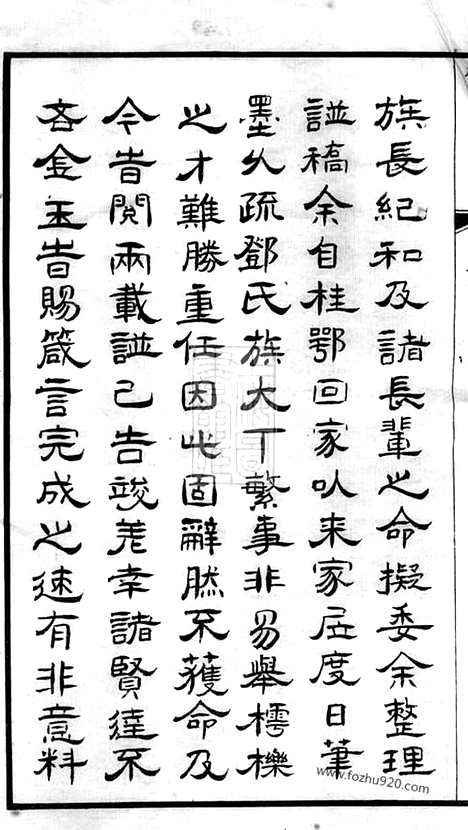 族長紀和及諸長輩之命擬委余整理
譜稿余自桂鄂回家以来家居度日筆
墨久疏鄧氏族大丁繁事非易舉樗櫟
之才難勝重任因此固辭然不獲命及
今昔閱兩載譜已告竣差幸諸賢達不
吝金玉昔賜箴言完成之速有非意料
www.fozhu920.com